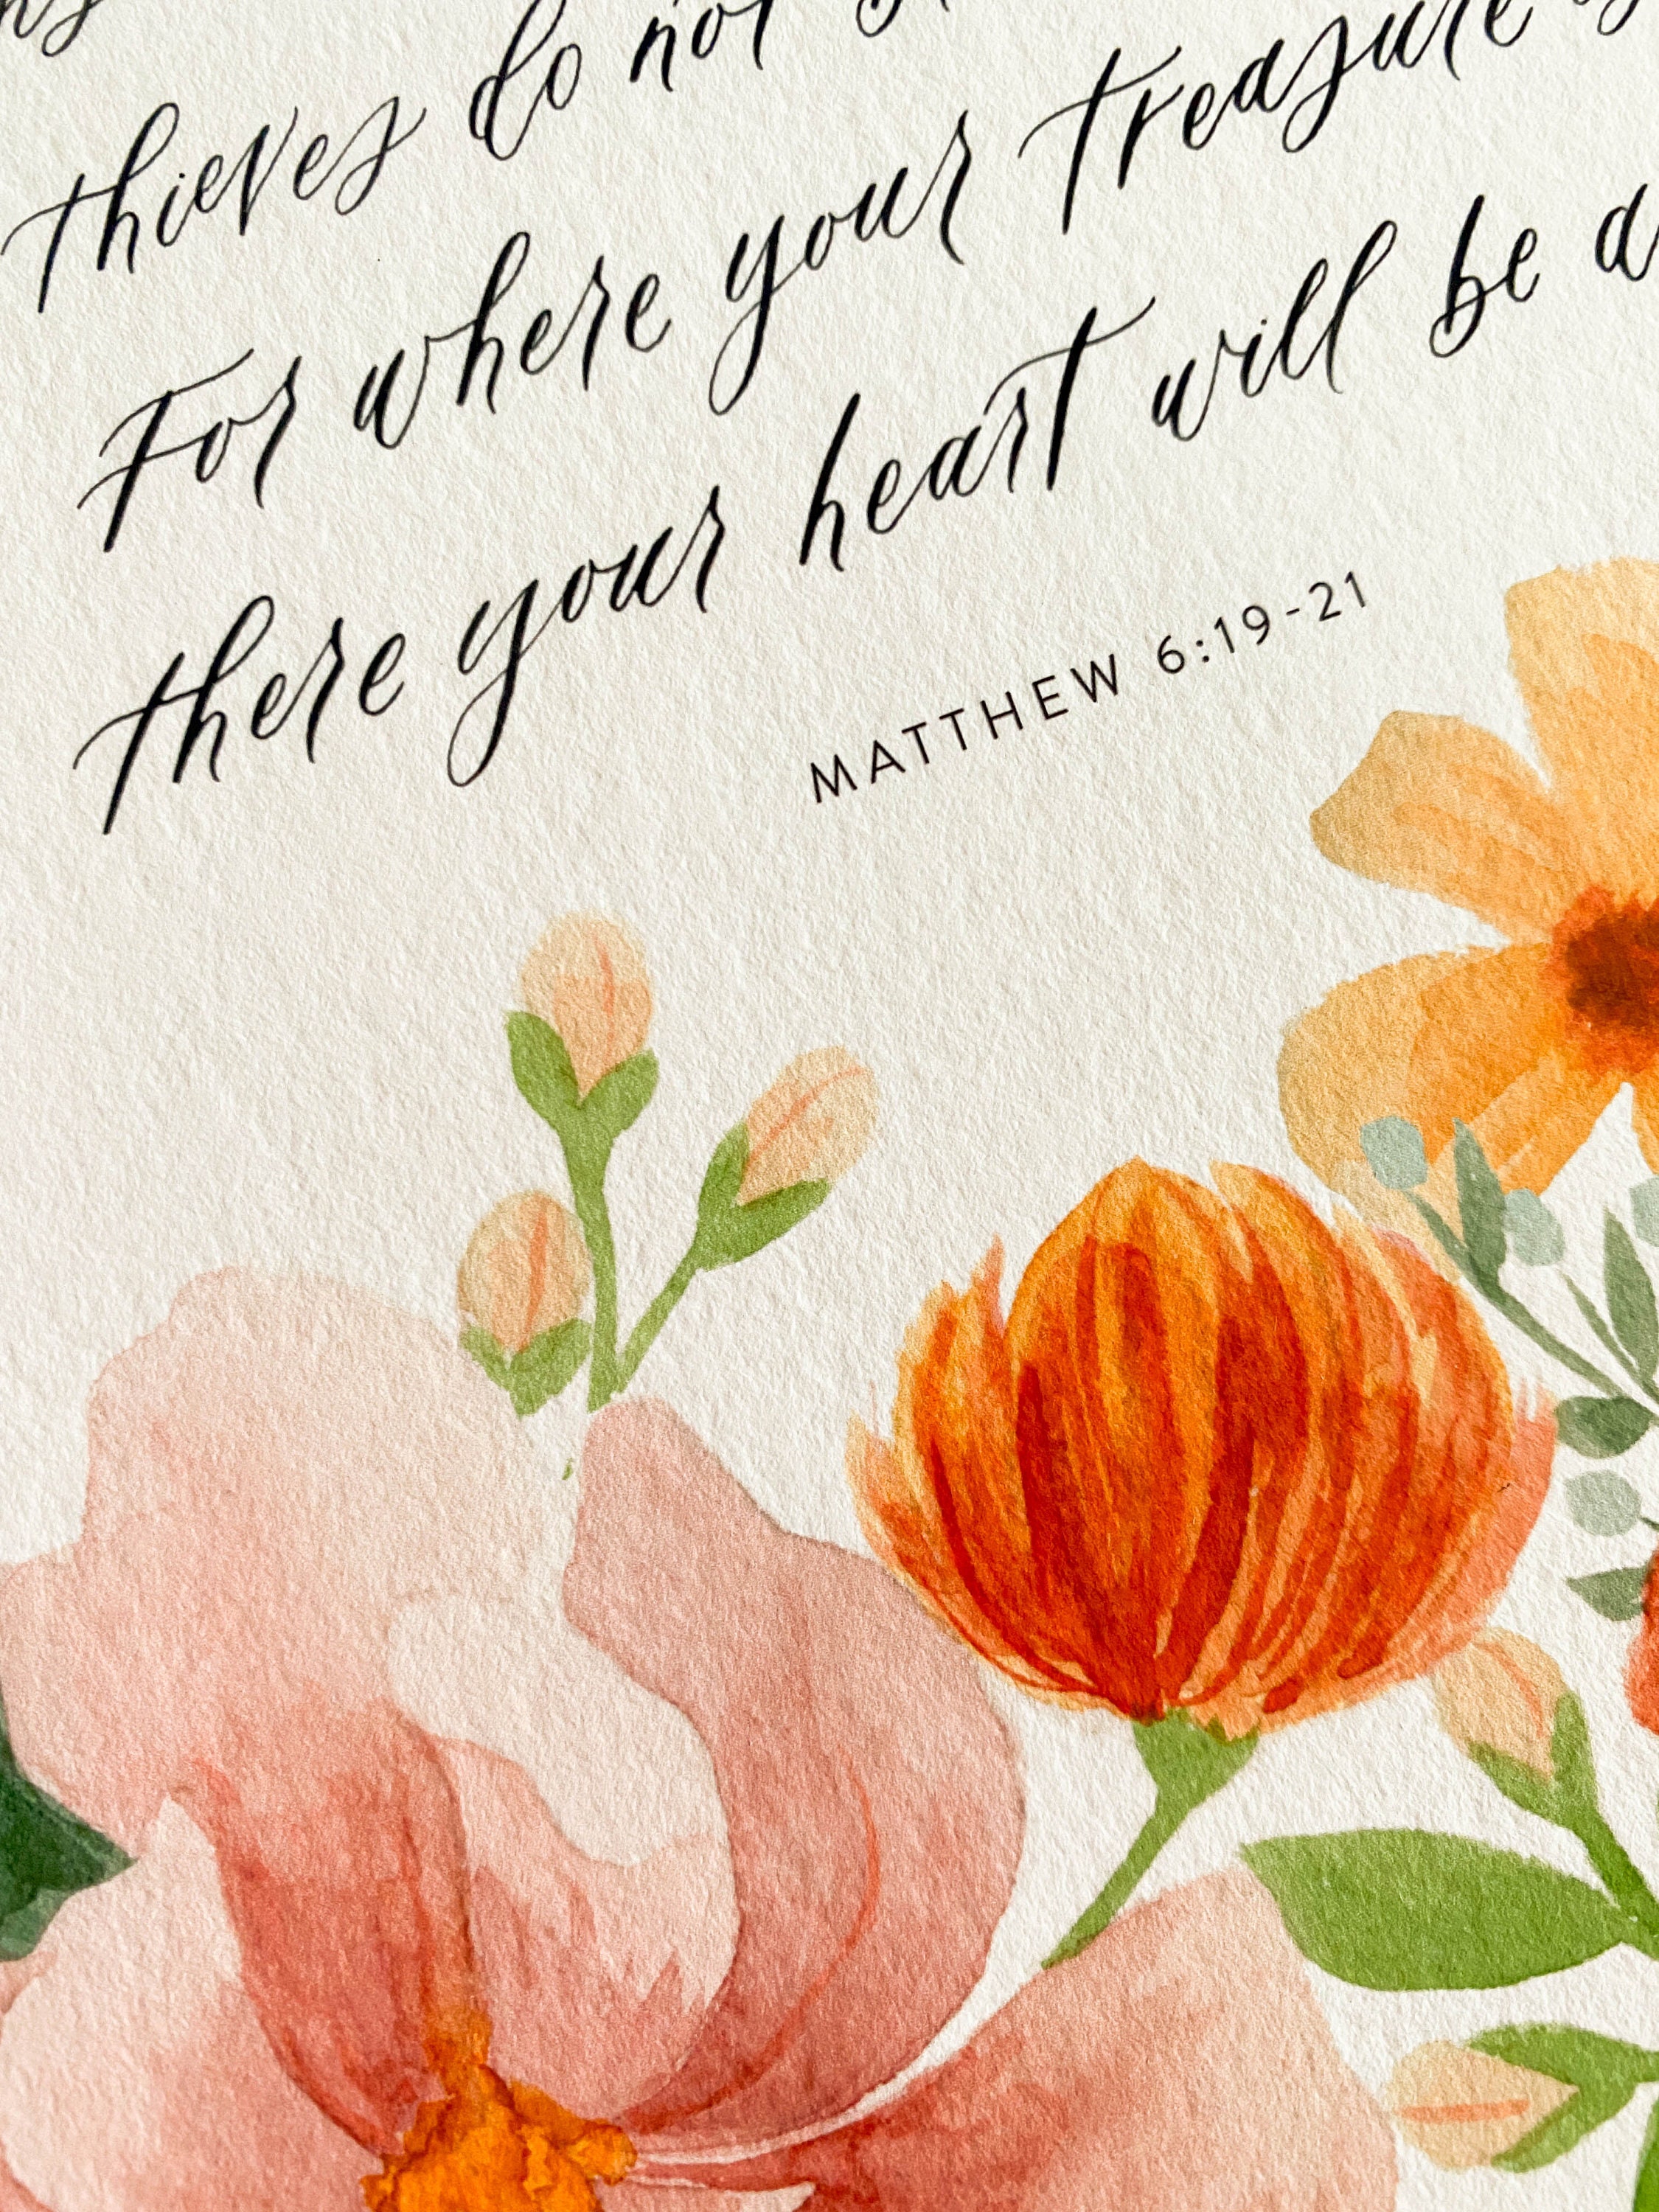 thieves do not
For where your treasure
there your heart will be
MATTHEW 6:19-21